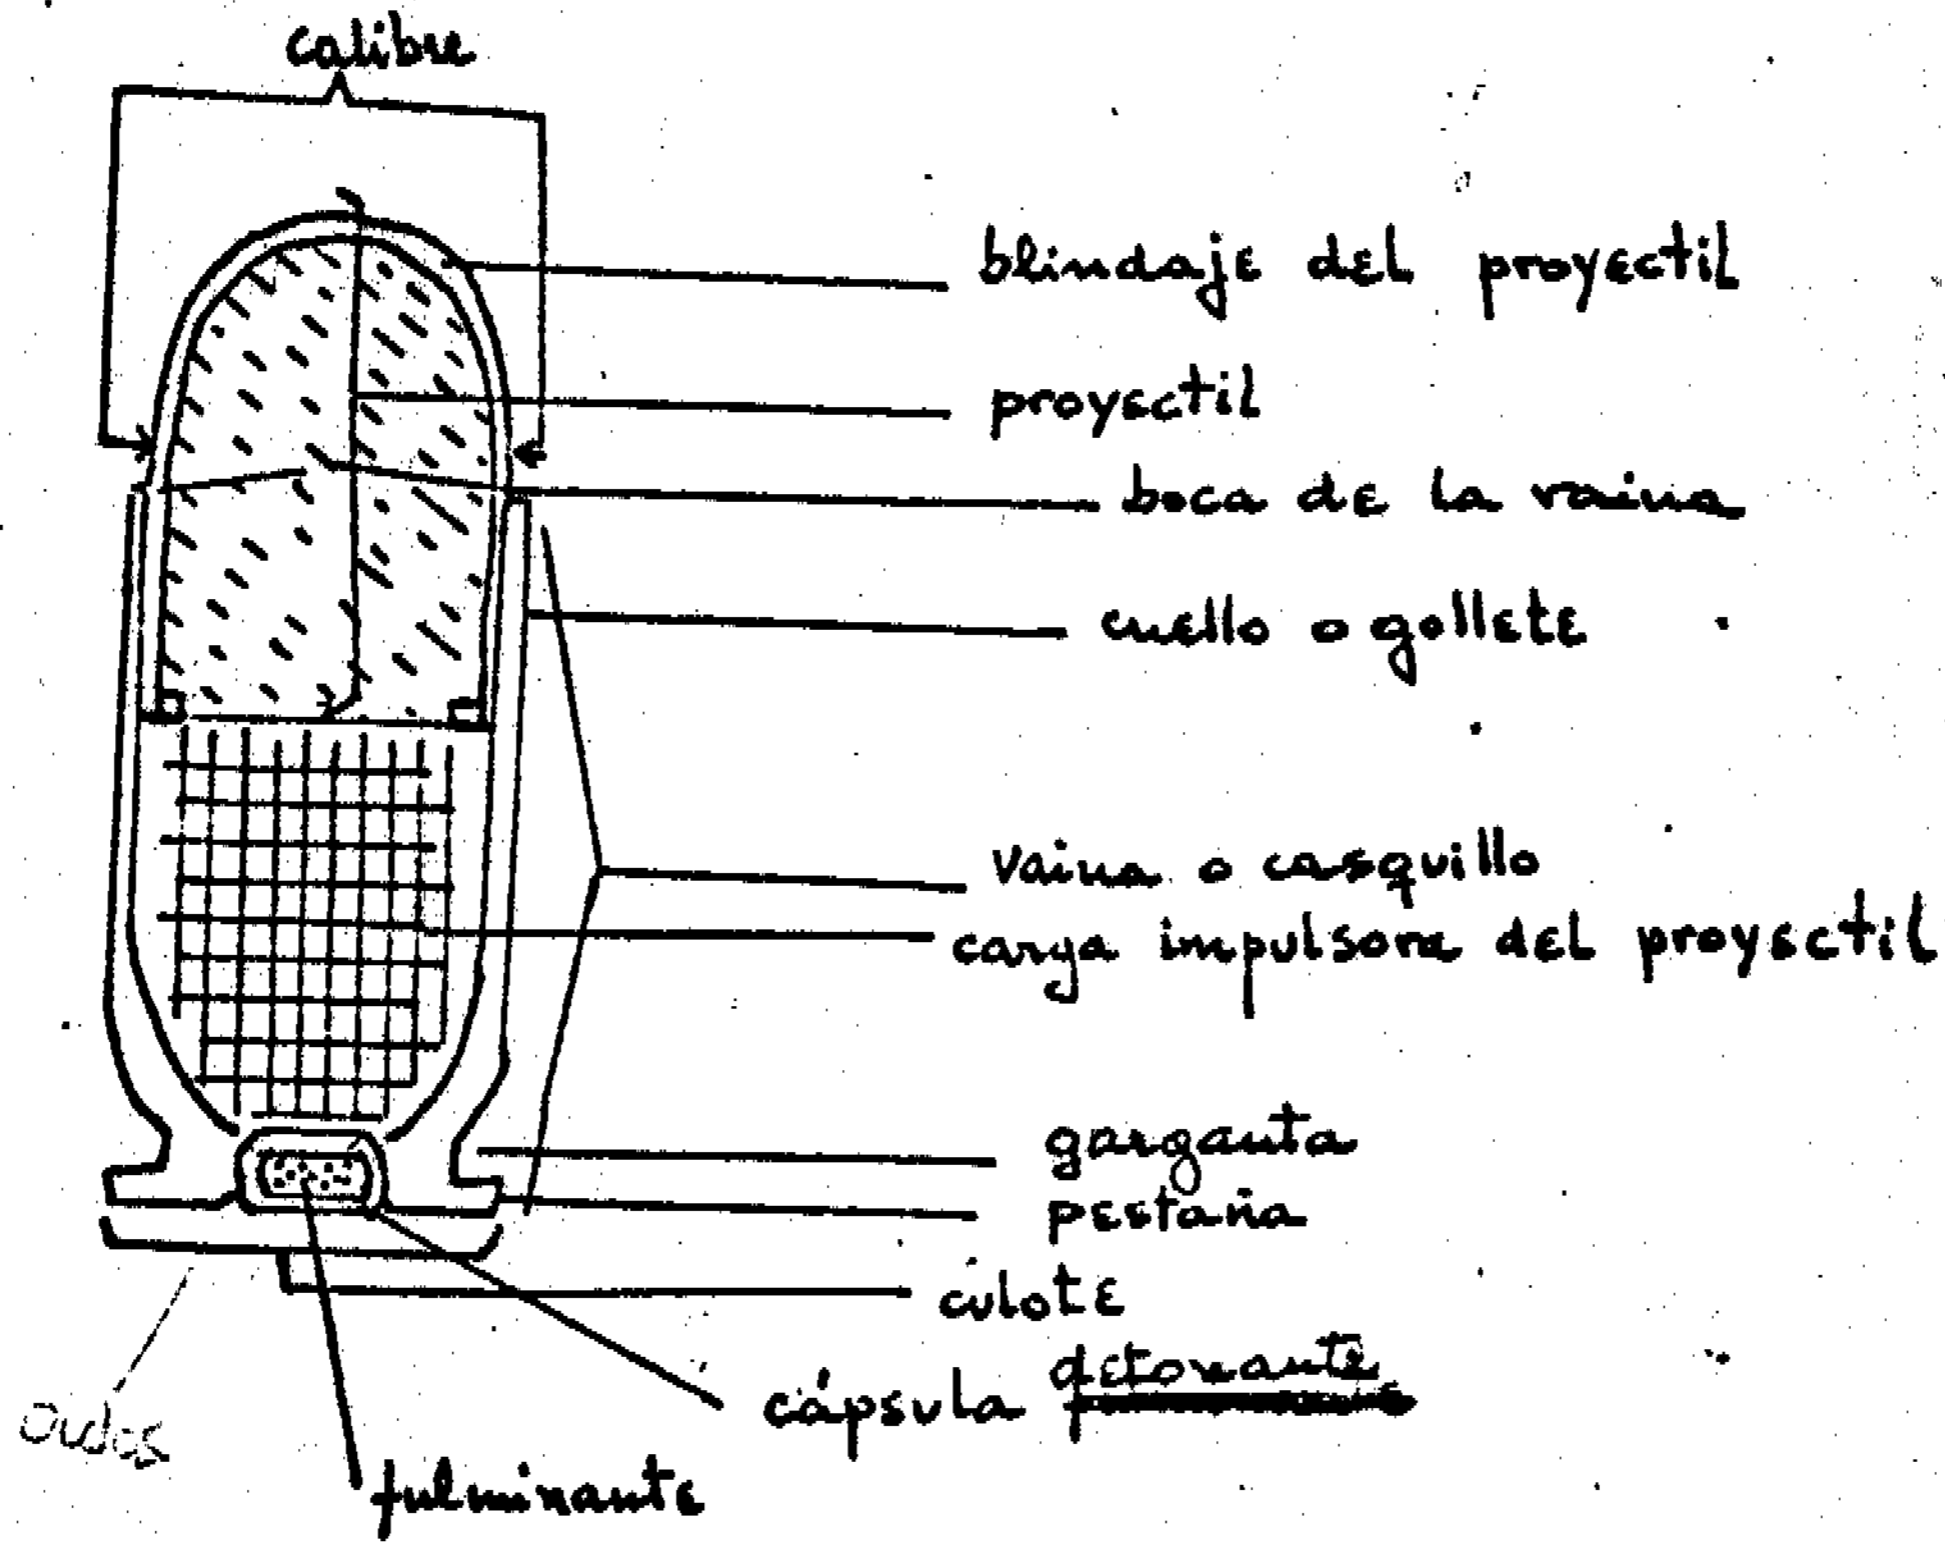 calibre
blindaje del proyectil
proyectil
boca de la vaina
cuello o gollete
vaina o casquillo
carga impulsora del proyectil
garganta
pestaña
culote
cápsula detonante
fulminante